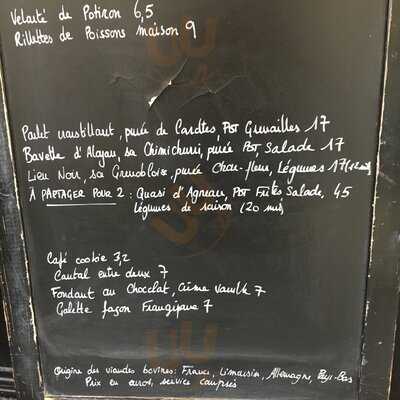 Velouté de Potiron 6,5
Rillettes de Poissons maison 9
Poulet croustillant, purée de Carottes, PDT Grenailles 17
Bavette d'Aloyau, sa Chimichurri, purée PDT Salade 17
Lieu Noir, sa Grenobloise, purée Chou-fleur, Légumes 17 (12 min)
À PARTAGER POUR 2 : Quasi d'Agneau, PDT Frites Salade, 45
légumes de saison (20 min)
Café cookie 3,2
Cantal entre deux 7
Fondant au Chocolat, Crème vanille 7
Galette façon Frangipane 7
Origine des viandes bovines : France, Limousin, Allemagne, Pays-Bas
Prix en euros, service compris